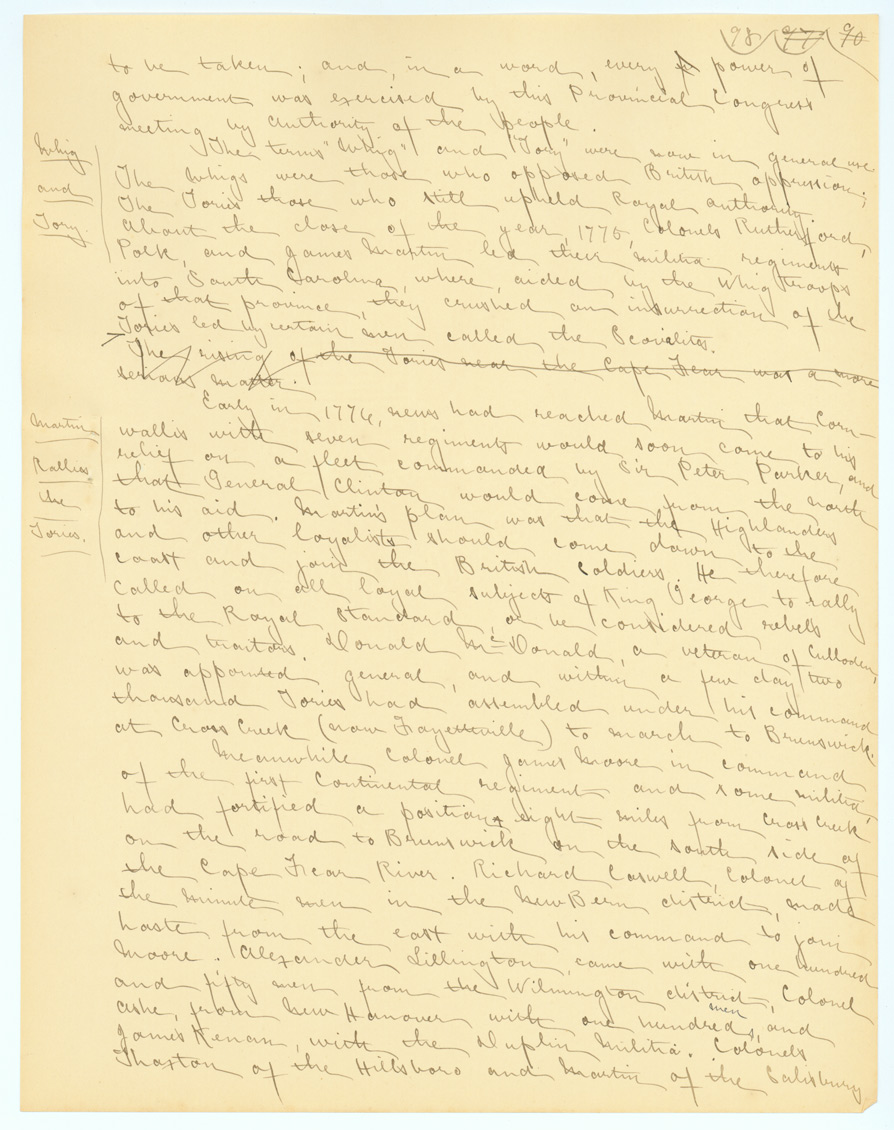 98 97 90
to be taken; and, in a word, every power of
government was exercised by this Provincial Congress
meeting by authority of the people.
Whig
and
Tory.
The terms "Whig" and "Tory" were now in general use.
The Whigs were those who opposed British oppression;
The Tories those who still upheld Royal authority.
About the close of the year, 1775, Colonels Rutherford,
Polk, and James Martin led their militia regiments
into South Carolina, where, aided by the Whig troops
of that province, they crushed an insurrection of the
Tories led by certain men called the Scovilites.
The rising of the Tories near the Cape Fear was a more
serious matter.
Martin
Rallies
the
Tories.
Early in 1776, news had reached Martin that Corn-
wallis with seven regiments would soon come to his
relief on a fleet commanded by Sir Peter Parker, and
that General Clinton would come from the north
to his aid. Martin's plan was that the Highlanders
and other loyalists should come down to the
coast and join the British soldiers. He therefore
called on all loyal subjects of King George to rally
to the Royal standard, or be considered rebels
and traitors. Donald McDonald, a veteran of Culloden,
was appointed general, and within a few days two
thousand Tories had assembled under his command
at Cross Creek (now Fayetteville) to march to Brunswick.
Meanwhile Colonel James Moore in command
of the first Continental regiment and some militia,
had fortified a position eight miles from Cross Creek
on the road to Brunswick on the south side of
the Cape Fear River. Richard Caswell, Colonel of
the minute men in the New Bern district, made
haste from the east with his command to join
Moore. Alexander Lillington came with one hundred
and fifty men from the Wilmington district, Colonel
Ashe, from New Hanover with one hundred men, and
James Kenan, with the Duplin militia. Colonels
Thaxton of the Hillsboro and Martin of the Salisbury